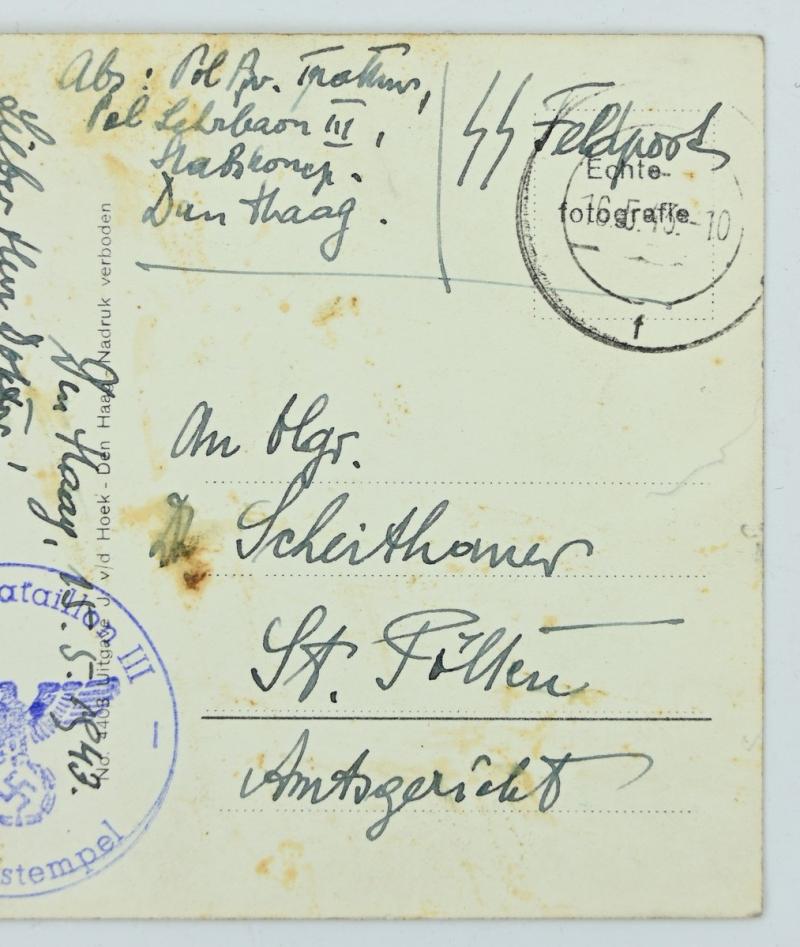 Abs: Pol
Pol Lehrbaon III,
Stabskomp.
Den Haag.
SS Feldpost
Echte-
fotografie
16.5.43.-10
f
An
Dr Scheithauer
St. Pölten
Amtsgericht
Lieber Herr Doktor!
Den Haag, 15. 5. 1943.
No. 4403 Uitgave J. v/d Hoek - Den Haag - Nadruk verboden
ataillon III
stempel